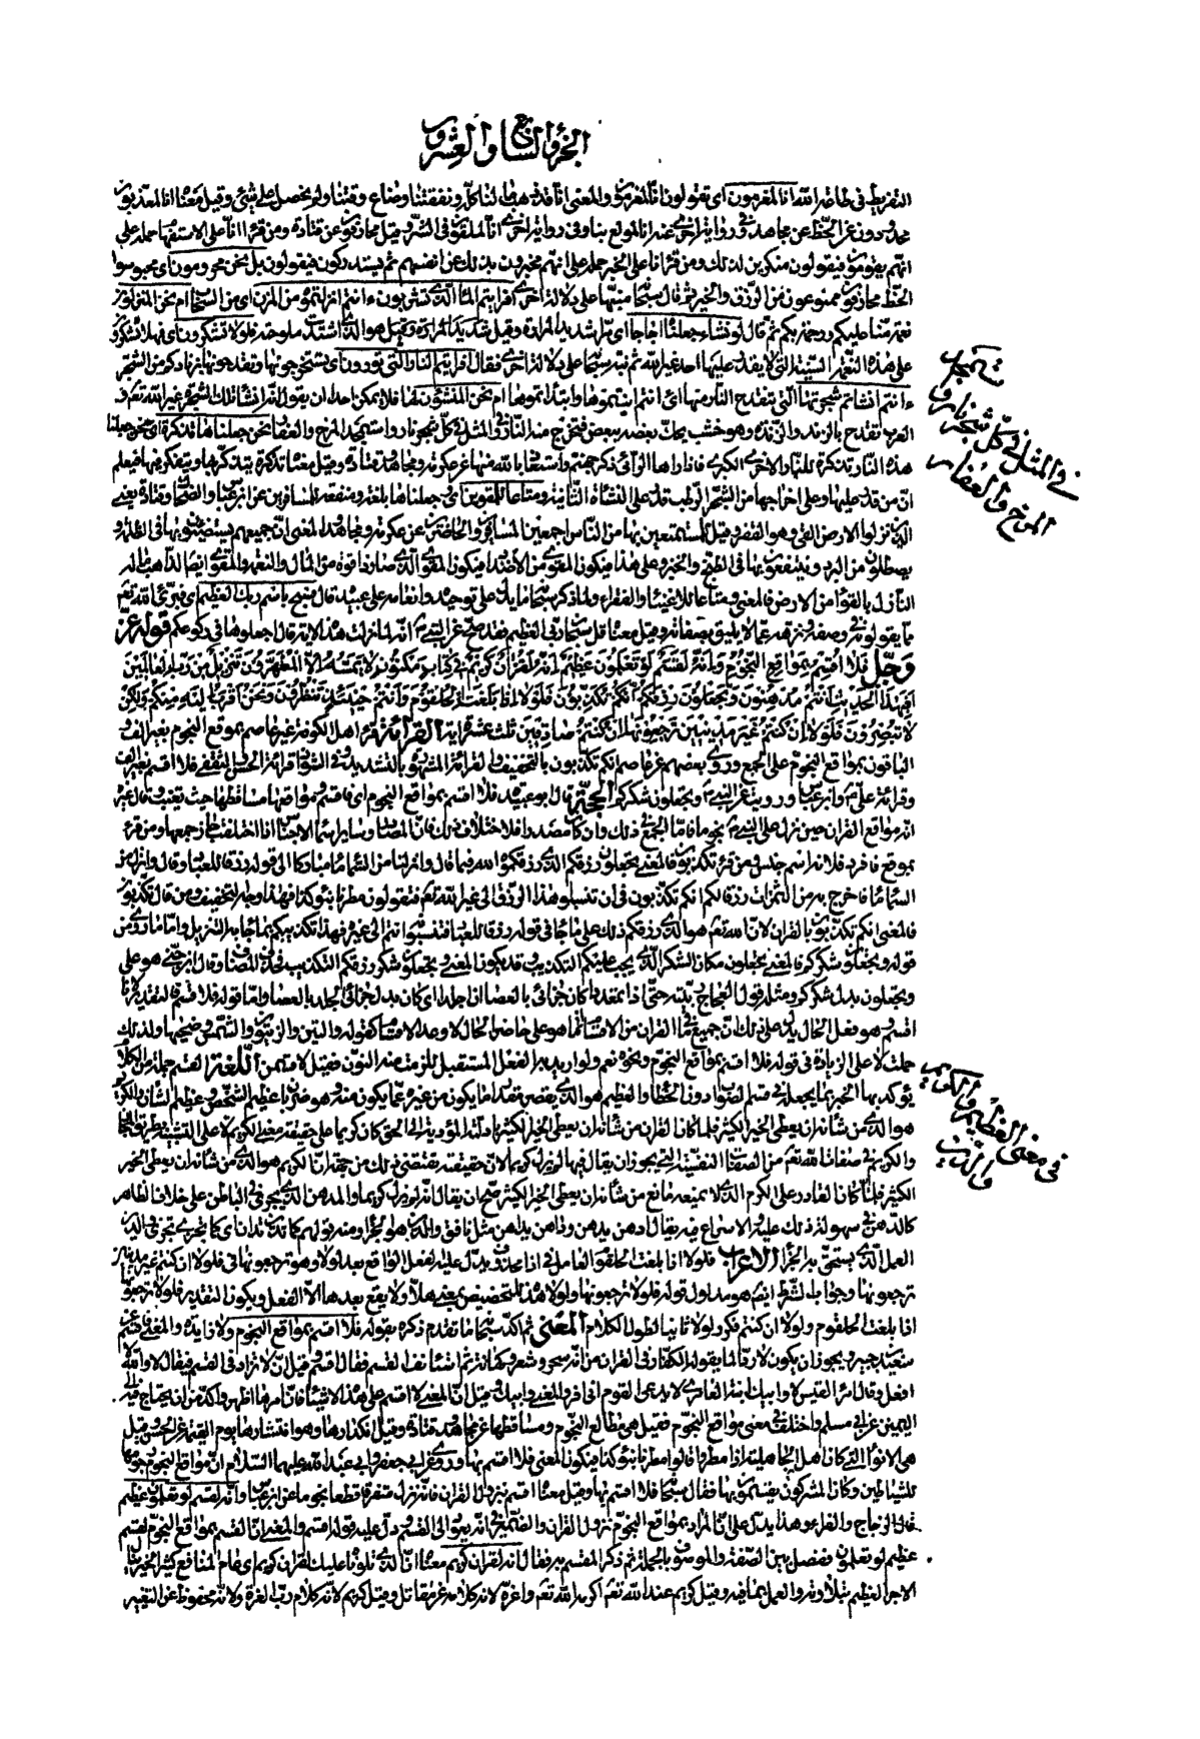 الجزء السابع والعشرون
التفريط فى طاعة الله انا لمغرمون اى تقولون انا لمغرمون والمعنى انا قد ذهب مالنا كله ونفقتنا وضاع وقتنا ولم يحصل على شىء وقيل معناه انا لمعذبون
محدودون عن الحظ عن مجاهد وفى رواية اخرى عنه انا لمولع بنا وفى رواية اخرى انا لملقون فى الشر وقيل محارفون عن قتادة ومن قرأ اانا على الاستفهام حمله على
انهم يقومون فيقولون منكرين لذلك ومن قرأ انا على الخبر حمله على انهم مخبرون بذلك عن انفسهم ثم يستدركون فيقولون بل نحن محرومون اى مبخوسوا
الحظ محارفون ممنوعون من الرزق والخير ثم قال سبحانه منبها على دلالة اخرى افرايتم الماء الذى تشربون ءانتم انزلتموه من المزن اى من السحاب ام نحن المنزلون
نعمة منا عليكم ورحمة بكم ثم قال لو نشاء جعلناه اجاجا اى مرا شديد المرارة وقيل هو الذى اشتدت ملوحته فلولا تشكرون اى فهلا تشكرون
على هذه النعمة السنية التى لا يقدر عليها احد غير الله ثم نبه سبحانه على دلالة اخرى فقال افرايتم النار التى تورون اى تستخرجونها وتقدحونها بزنادكم من الشجر
ءانتم انشاتم شجرتها التى تنقدح النار منها اى انتم انبتموها وابتداتموها ام نحن المنشؤن لها فلا يمكن احدا ان يقول انه انشا تلك الشجرة غير الله تعم و
العرب تقدح بالزند والزندة وهو خشب يحك بعضه ببعض فتخرج منه النار وفى المثل فى كل شجر نار واستمجد المرخ والعفار نحن جعلناها تذكرة اى نحن جعلنا
هذه النار تذكرة للنار الاخرى الكبرى فاذا راها الرائى ذكر جهنم واستعاذ بالله منها عن عكرمة ومجاهد وقتادة وقيل معناه تذكرة يتذكر بها ويتفكر فيها فيعلم
ان من قدر عليها وعلى اخراجها من الشجر الرطب قدر على النشاة الثانية ومتاعا للمقوين اى وجعلناها بلغة ومنفعة للمسافرين عن ابن عباس والضحاك وقتادة يعنى
الذين نزلوا الارض القى وهو القفر وقيل للمستمتعين بها من الناس اجمعين المسافرين والحاضرين عن عكرمة ومجاهد والمعنى ان جميعهم يستضيئون بها فى الظلمة و
يصطلون من البرد وينتفعون بها فى الطبخ والخبز وعلى هذا فيكون المقوى من الاضداد فيكون المقوى الذى صار ذا قوة من المال والنعمة والمقوى ايضا الذاهب ماله
النازل بالقواء من الارض فالمعنى ومتاعا للاغنياء والفقراء ولما ذكر سبحانه ما يدل على توحيده وانعامه على عبيده قال فسبح باسم ربك العظيم اى فبرئ الله تعم
مما يقولونه فى وصفه ونزهه عما لا يليق بصفاته وقيل معناه قل سبحان ربى العظيم فقد صح عن النبى ص انه لما نزلت هذه الاية قال اجعلوها فى ركوعكم قوله عز
وجل فلا اقسم بمواقع النجوم وانه لقسم لو تعلمون عظيم انه لقران كريم فى كتاب مكنون لا يمسه الا المطهرون تنزيل من رب العالمين
افبهذا الحديث انتم مدهنون وتجعلون رزقكم انكم تكذبون فلولا اذا بلغت الحلقوم وانتم حينئذ تنظرون ونحن اقرب اليه منكم ولكن
لا تبصرون فلولا ان كنتم غير مدينين ترجعونها ان كنتم صادقين ثلث عشرة اية القراءة قرء اهل الكوفة غير عاصم بموقع النجوم بغير الف
الباقون بمواقع النجوم على الجمع وروى بعضهم عن عاصم انكم تكذبون بالتخفيف والقراءة المشهورة بالتشديد وفى الشواذ قراءة الحسن والثقفى فلاقسم بغير الف
وقراءة على ع وابن عباس ورويت عن النبى ص وتجعلون شكركم الحجة قال ابو عبيدة فلا اقسم بمواقع النجوم اى فاقسم ومواقعها مساقطها حيث تغيب وقال غيره
انه مواقع القران حين نزل على النبى ص نجوما فاما الجمع فى ذلك وان كان مصدرا فلاختلاف ذلك فان المصادر وساير اسماء الاجناس اذا اختلفت جاز جمعها ومن قرء
بموقع فافرد فلانه اسم جنس ومن قرء تكذبون فالمعنى تجعلون رزقكم الذى رزقكموه الله فيما قال وانزلنا من السماء ماء مباركا الى قوله رزقا للعباد وقال وانزل من
السماء ماء فاخرج به من الثمرات رزقا لكم انكم تكذبون فى ان تنسبوا هذا الرزق الى غير الله تعم فتقولون مطرنا بنوء كذا فهذا وجه التخفيف ومن قال تكذبون
فالمعنى انكم تكذبون بالقران لان الله تعم هو الذى رزقكم ذلك على ما جاء فى قوله رزقا للعباد فتنسبوه انتم الى غيره فهذا تكذيبكم بما جاء به التنزيل واما ما روى من
قوله وتجعلون شكركم فالمعنى تجعلون مكان الشكر الذى يجب عليكم التكذيب وقد يكون المعنى وتجعلون شكر رزقكم التكذيب فحذف المضاف وقال ابن جنى هو على
وتجعلون بدل شكركم ومثله قول العجاج ربيته حتى اذا تمعددا كان جزائى بالعصا ان اجلدا اى كان بدل جزائى الجلد بالعصا واما قوله فلاقسم فالتقدير لانا
اقسم وهو فعل الحال يدل على ذلك ان جميع ما فى القران من الاقسام انما هو على حاضر الحال لا وعد الاقسام كقوله والتين والزيتون والشمس وضحيها ولذلك
حملت لا على الزيادة فى قوله فلا اقسم بمواقع النجوم ونحوه نعم ولو اريد به الفعل المستقبل للزمت منه النون فقيل لاقسمن اللغة القسم جملة من الكلام
يؤكد بها الخبر بما يجعله فى قسم الصواب دون الخطا والعظيم هو الذى يقصر مقدار ما يكون من غيره عما يكون منه وهو ضربان عظيم الشخص وعظيم الشان والكريم
هو الذى من شانه ان يعطى الخير الكثير فلما كان القران من شانه ان يعطى الخير الكثير بادلته المؤدية الى الحق كان كريما على حقيقة معنى الكريم لا على التشبيه بطريق المجاز
والكريم فى صفات الله تعم من الصفات النفسية التى يجوز ان يقال فيها لم يزل كريما لان حقيقته تقتضى ذلك من جهة ان الكريم هو الذى من شانه ان يعطى الخير
الكثير فلما كان القادر على الكرم الذى لا يمنعه مانع من شانه ان يعطى الخير الكثير صح ان يقال انه لم يزل كريما والمدهن الذى يجرى فى الباطن على خلاف الظاهر
كالدهن فى سهولة ذلك عليه والاسراع فيه يقال ادهن يدهن وداهن يداهن مثل نافق والدين هو الجزاء ومنه قولهم كما تدين تدان اى كما تجزى تجزى والدين
العمل الذى يستحق به الجزاء الاعراب فلولا اذا بلغت الحلقوم العامل فى اذا محذوف يدل عليه الفعل الواقع بعد لولا وهو ترجعونها فى فلولا ان كنتم غير مدينين
ترجعونها وجواب الشرط ايضا هو مدلول قوله فلولا ترجعونها ولولا هذه للتحضيض بمعنى هلا ولا يقع بعدها الا الفعل ويكون التقدير فلولا ترجعونها
اذا بلغت الحلقوم ولولا ان كنتم فكرر لولا ثانيا لطول الكلام المعنى ثم اكد سبحانه ما تقدم ذكره بقوله فلا اقسم بمواقع النجوم ولا زايدة والمعنى فاقسم عن
سعيد بن جبير ويجوز ان يكون لا ردا لما يقوله الكفار فى القران من انه سحر وشعر وكهانة ثم استانف القسم فقال اقسم وقيل ان لا تزاد فى القسم فيقال لا والله
افعل وقال امرؤ القيس لا وابيك ابنة العامرى لا يدعى القوم انى افر والمعنى وابيك وقيل ان المعنى لا اقسم على هذه الاشياء فان امرها اظهر واكد من ان يحتاج فيه الى
اليمين عن ابى مسلم واختلف فى معنى مواقع النجوم فقيل هى مطالع النجوم ومساقطها عن مجاهد وقتادة وقيل انكدارها وهو انتشارها يوم القيمة عن الحسن وقيل
هى الانواء التى كان اهل الجاهلية اذا مطروا قالوا مطرنا بنوء كذا فيكون المعنى فلا اقسم بها وروى عن ابى جعفر وابى عبد الله عليهما السلام ان مواقع النجوم رجومها
للشياطين وكان المشركون يقسمون بها فقال سبحانه فلا اقسم بها وقيل معناه اقسم بنزول القران فانه نزل متفرقا قطعا نجوما عن ابن عباس وانه لقسم لو تعلمون عظيم
قال الزجاج والفراء وهذا يدل على ان المراد بمواقع النجوم نزول القران والضمير فى انه يعود الى القسم ودل عليه قوله اقسم والمعنى ان القسم بمواقع النجوم لقسم
عظيم لو تعلمون ففصل بين الصفة والموصوف بالجملة ثم ذكر المقسم به فقال انه لقران كريم معناه ان الذى تلوناه عليك لقران كريم اى عام المنافع كثير الخير ينال
الاجر العظيم بتلاوته والعمل بما فيه وقيل كريم عند الله تعم اكرمه الله تعم واعزه لانه كلامه عن مقاتل وقيل كريم لانه كلام رب العزة ولانه محفوظ عن التغيير
فى المثل فى كل شجر نار و
استمجد
المرخ والعفار
فى معنى العظيم والكريم
والدين